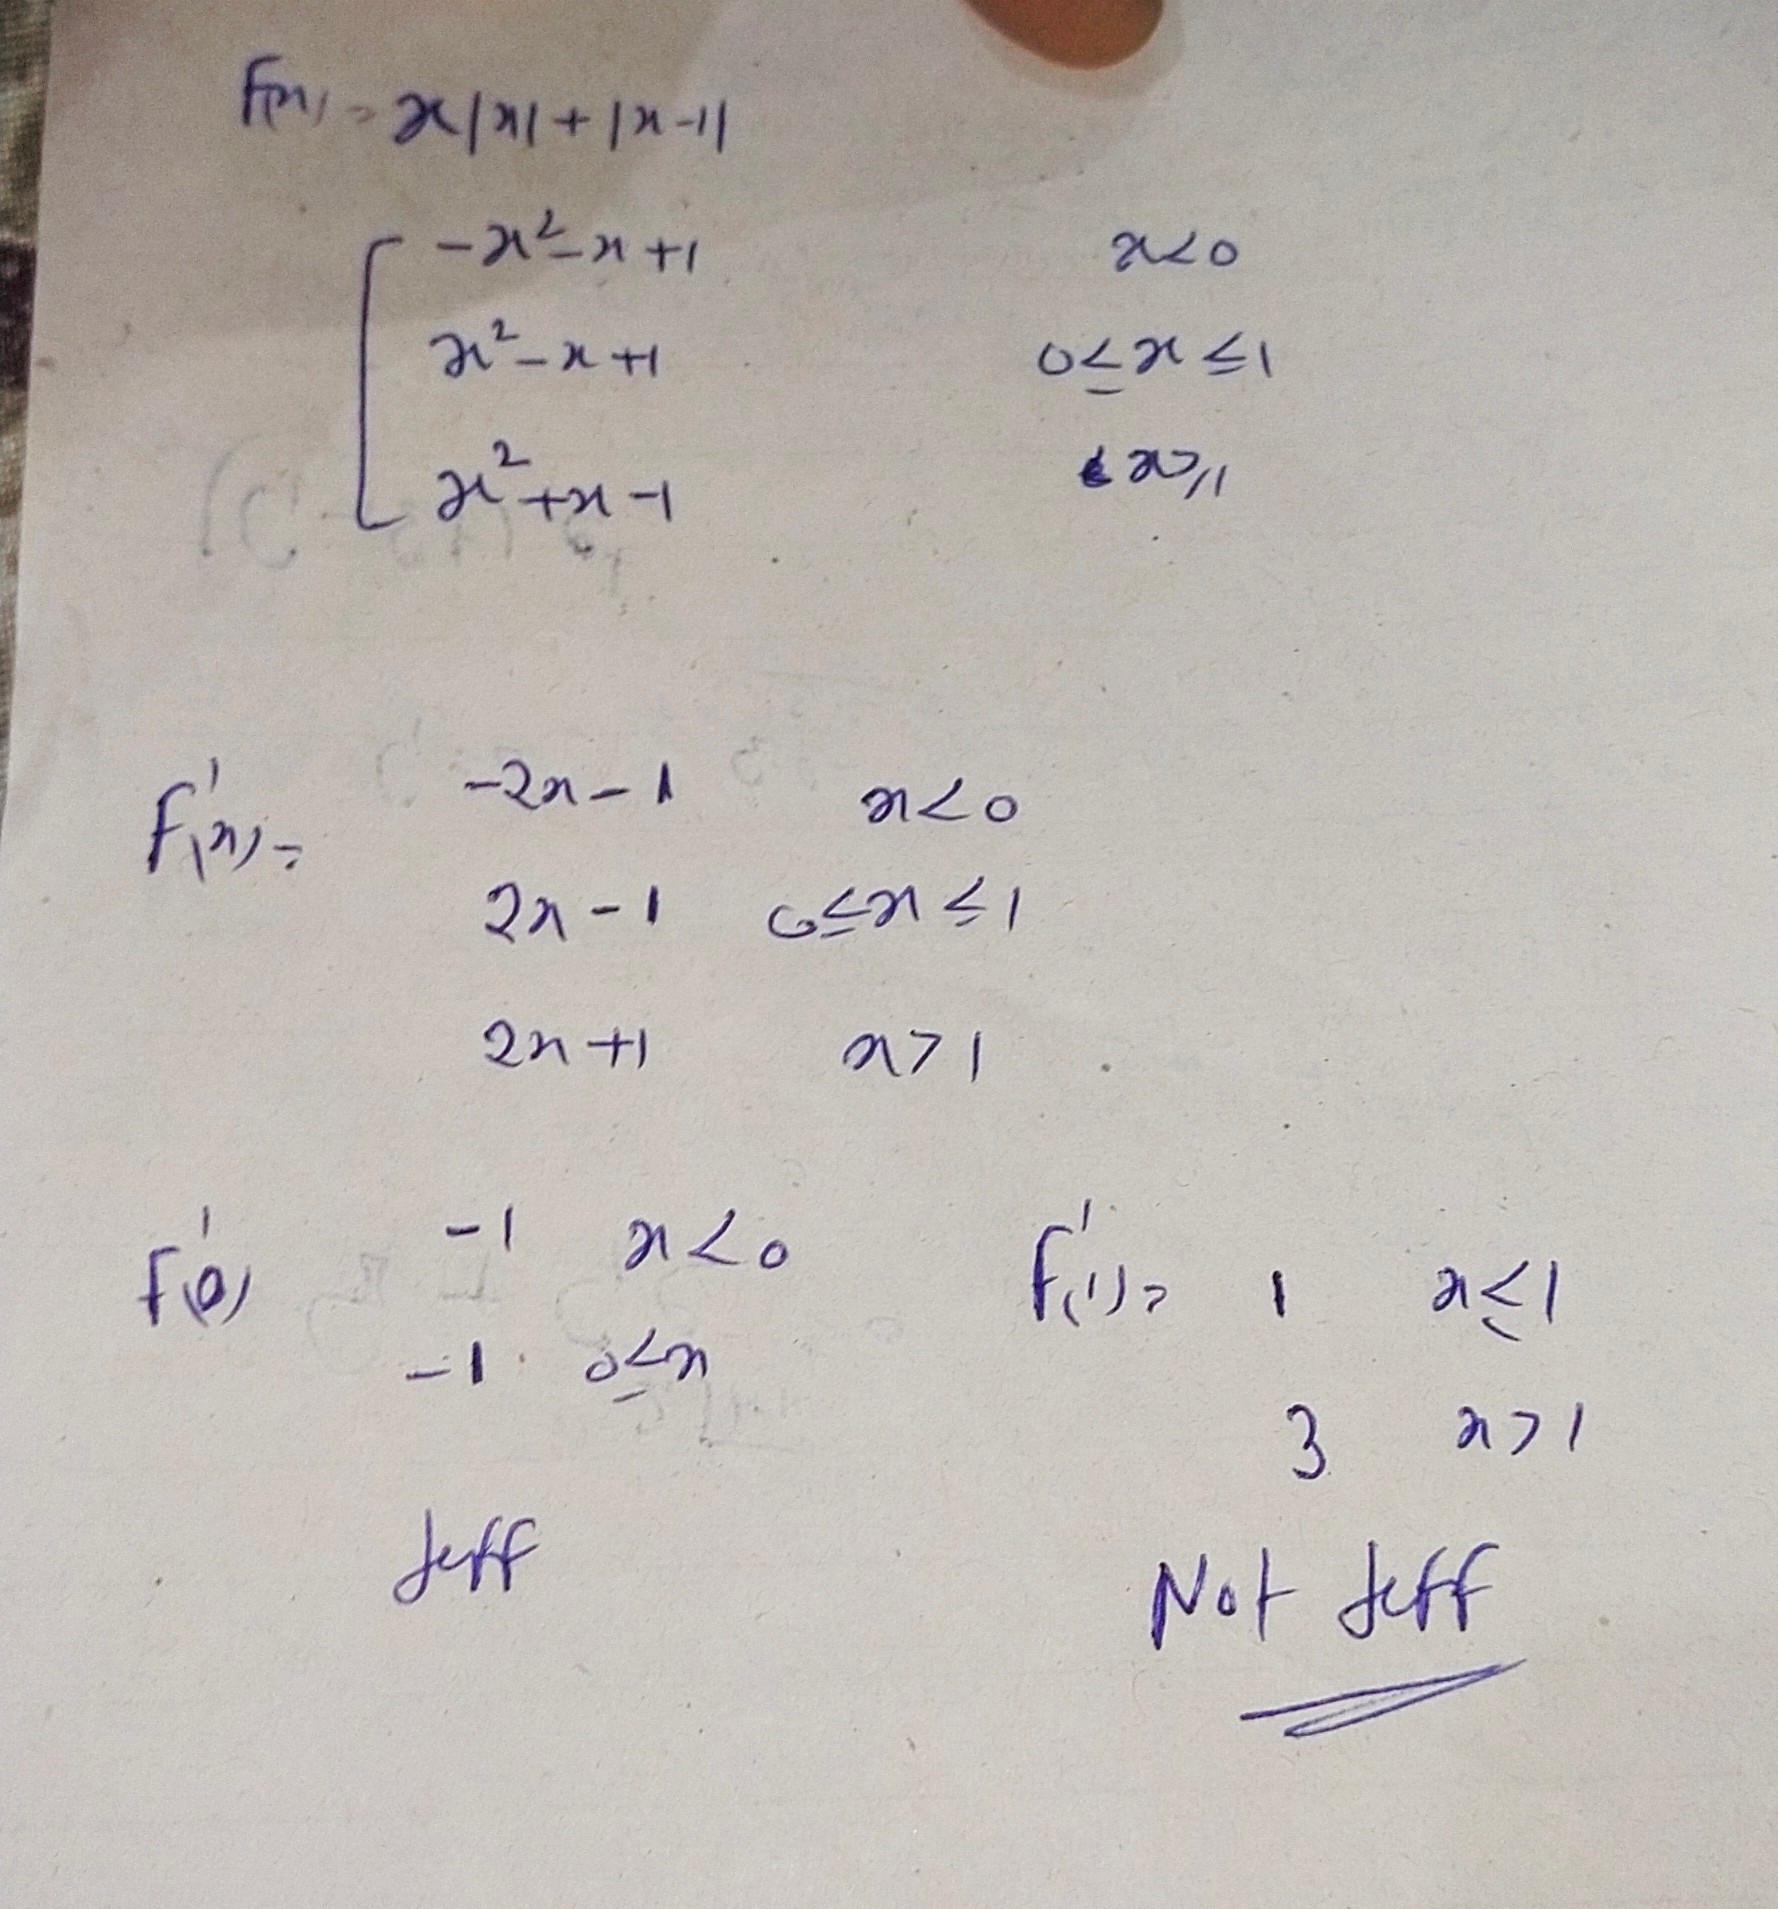 F(x) = x|x| + |x-1|
-x²-x+1 x<0
x²-x+1 0≤x≤1
x²+x-1 x>,1
F'(x) =
-2x-1 x<0
2x-1 0≤x≤1
2x+1 x>1
F'(0) -1 x<0
-1 0≤x
F'(1) = 1 x≤1
3 x>1
diff
Not diff